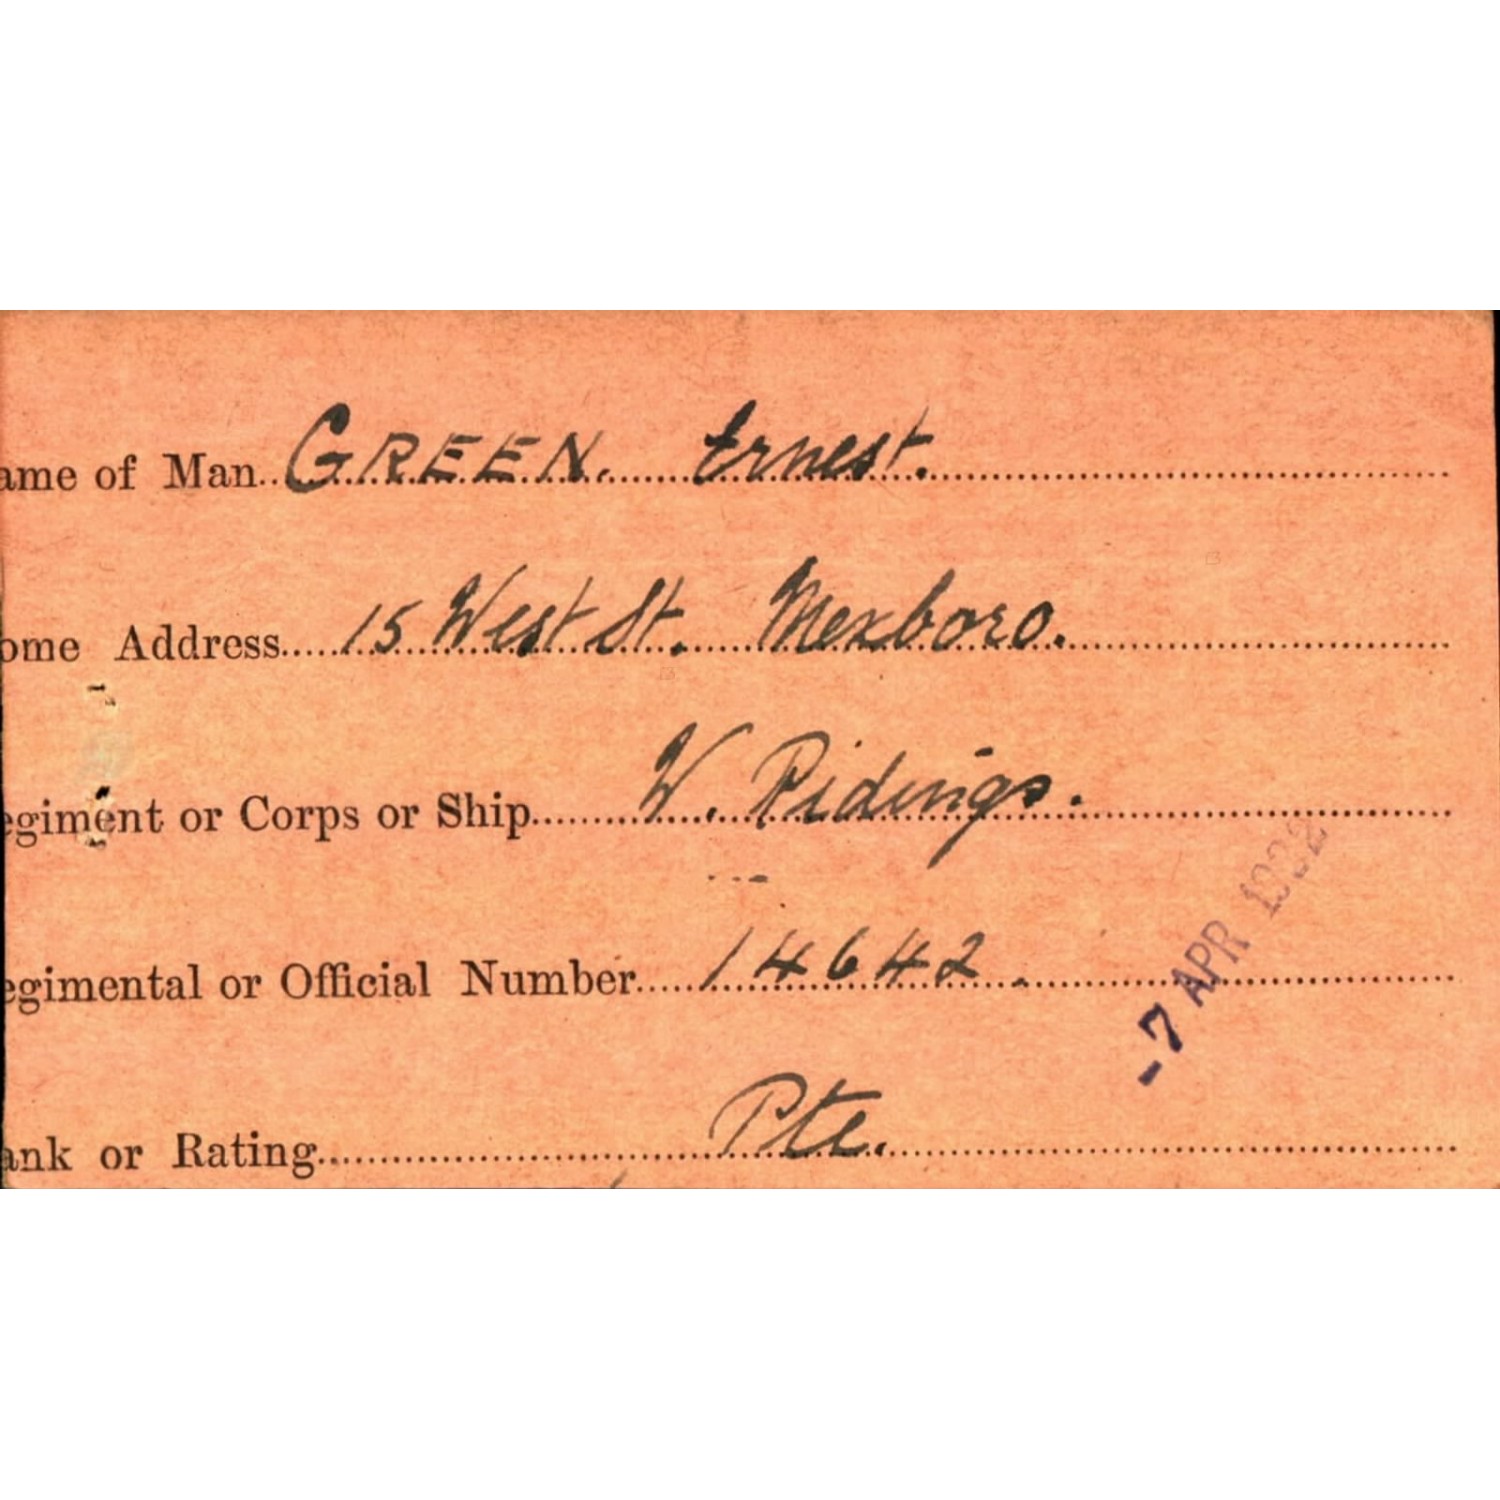 ame of Man.. GREEN. Ernest.
ome Address.... 15 West St. Mexboro.
egiment or Corps or Ship..... W. Ridings.
egimental or Official Number.... 14642.
-7 APR
ank or Rating.... Pte.